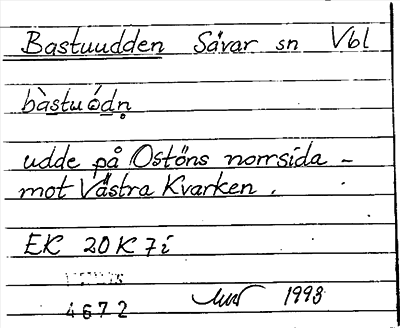 Bastuudden Sävar sn Vbl
bàstuódṇ
udde på Ostöns norrsida -
mot Västra Kvarken.
EK 20K 7i
4672 1993